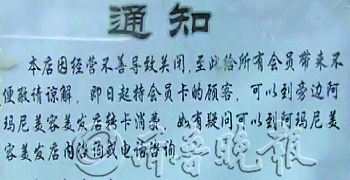 通知
本店因经营不善导致关闭，至此给所有会员带来不
便敬请谅解，即日起持会员卡的顾客，可以到旁边阿
玛尼美容美发店转卡消费，如有疑问可以到阿玛尼美
容美发店内沟通或电话咨询
齐鲁晚报